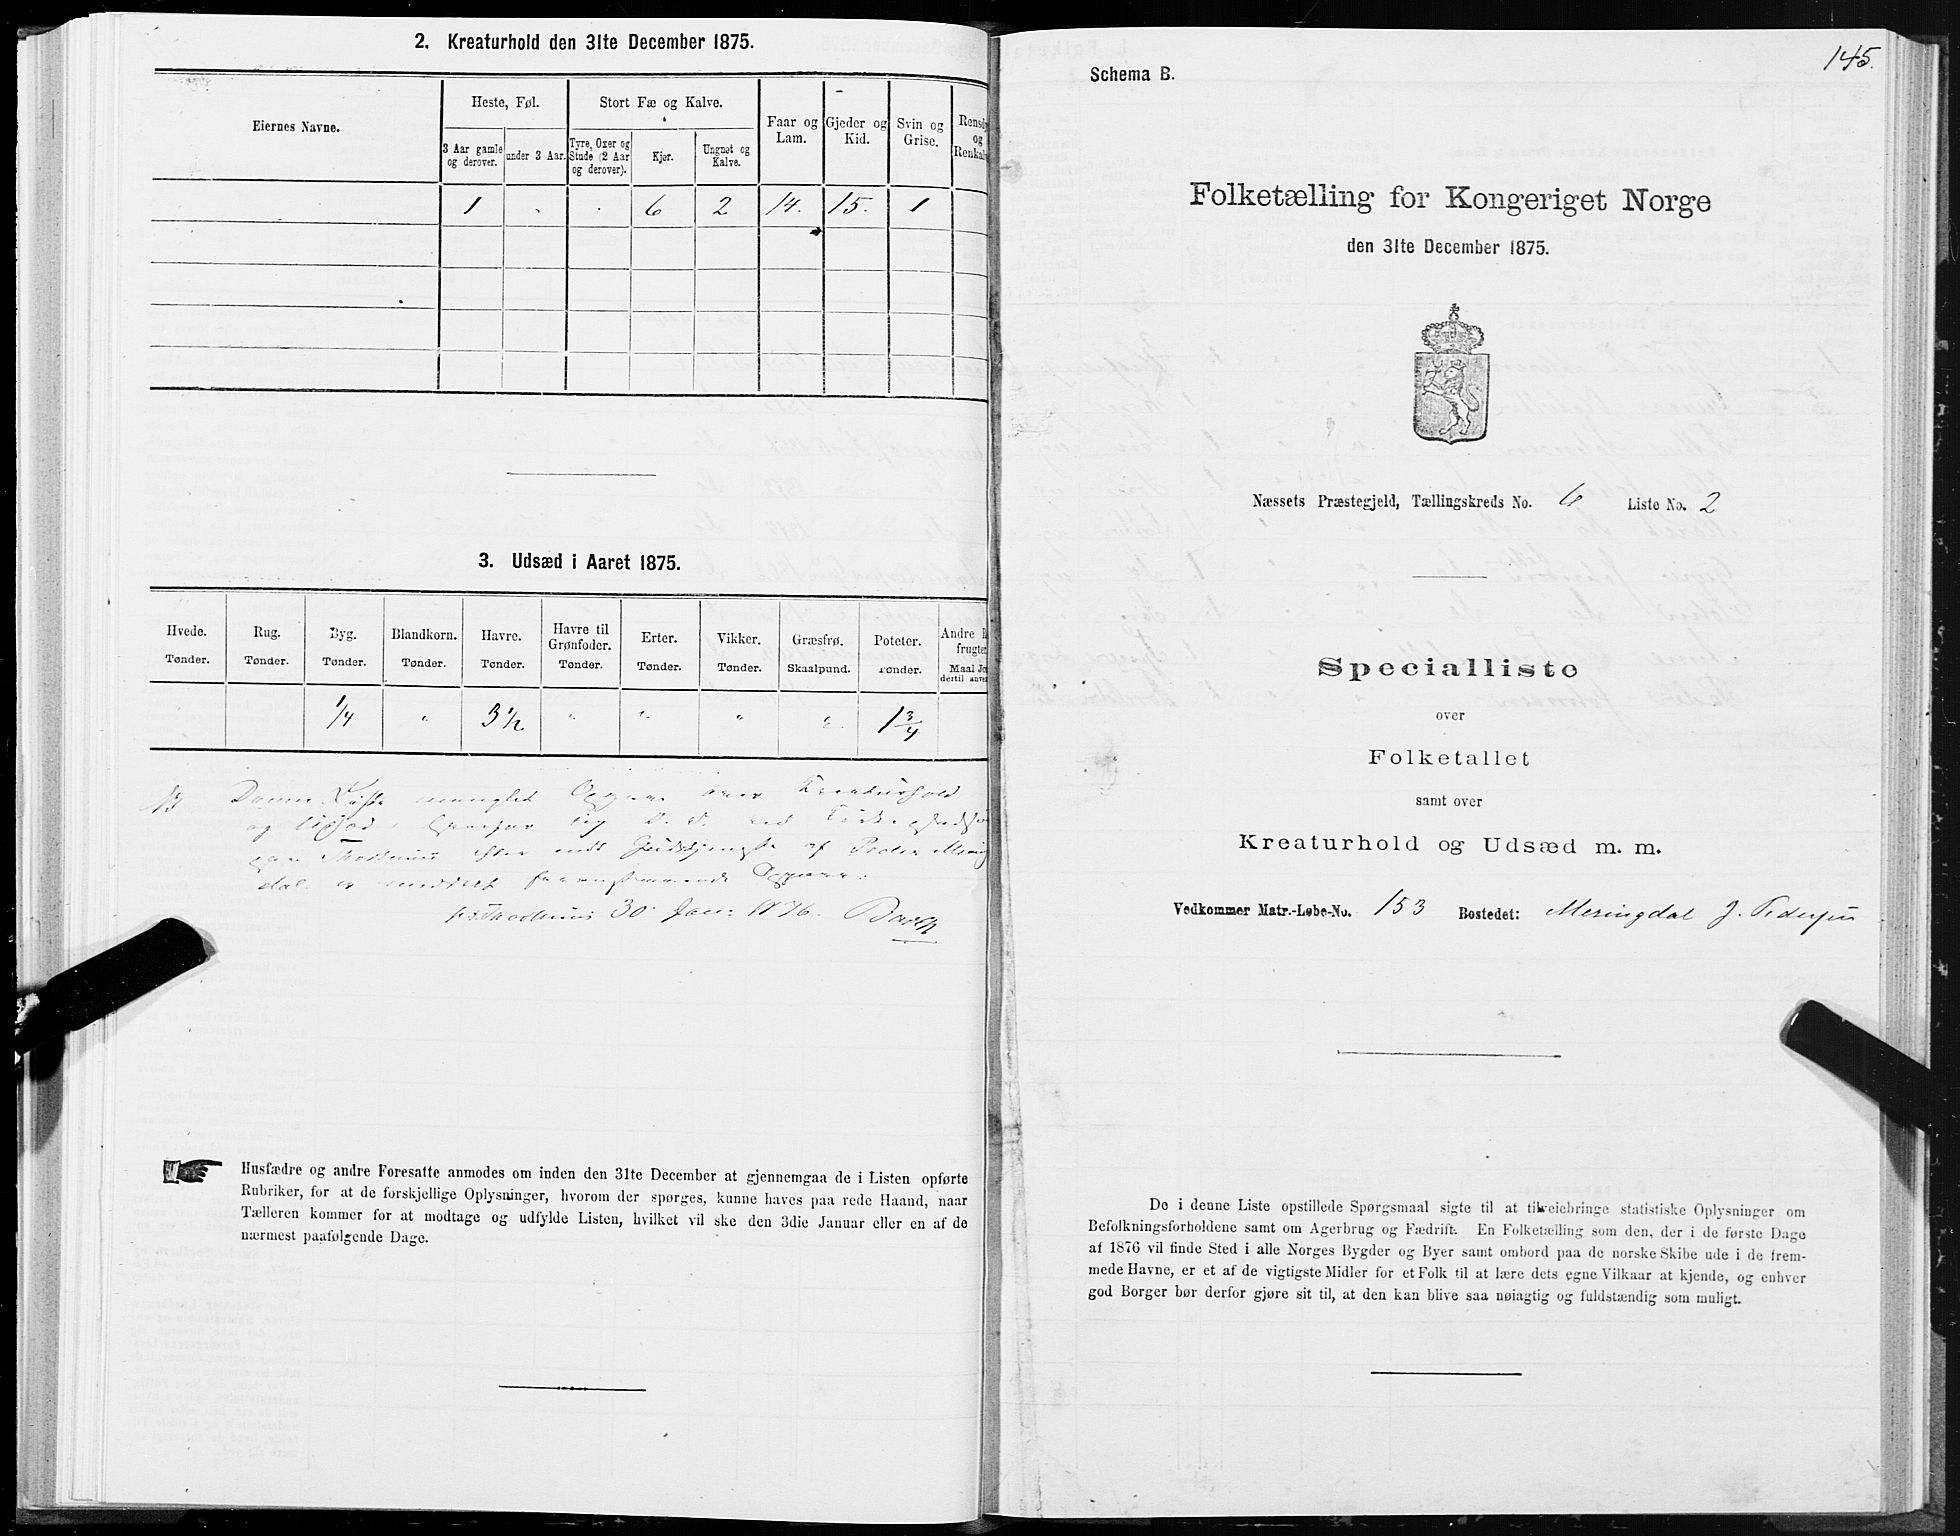 2. Kreaturhold den 31te December 1875.
Eiernes Navne.
Heste, Føl.
Stort Fæ og Kalve.
Faar og Lam.
Gjeder og Kid.
Svin og Grise.
Rensd
og
Renkal
3 Aar gamle og derover.
under 3 Aar.
Tyre, Oxer og Stude (2 Aar og derover).
Kjør.
Ungnøt og Kalve.
1 . . 6 2 14. 15. 1
3. Udsæd i Aaret 1875.
Hvede. Rug. Byg. Blandkorn. Havre. Havre til Grønfoder. Erter. Vikker. Græsfrø. Poteter. Andre
frugte
Tønder. Tønder. Tønder. Tønder. Tønder. Tønder. Tønder. Tønder. Skaalpund. Tønder. Maal Jo
dertil anve
1/4 " 3 1/2 " " " " 1 3/4
Denne Liste manglet Opgave over Kreaturhold
og Udsæd
af Peder
dal er meddelt foranstaaende Opgave.
30 Jan. 1876.
Husfædre og andre Foresatte anmodes om inden den 31te December at gjennemgaa de i Listen opførte
Rubriker, for at de forskjellige Oplysninger, hvorom der spørges, kunne haves paa rede Haand, naar
Tælleren kommer for at modtage og udfylde Listen, hvilket vil ske den 3die Januar eller en af de
nærmest paafølgende Dage.
145.
Schema B.
Folketælling for Kongeriget Norge
den 31te December 1875.
Næssets Præstegjeld, Tællingskreds No. 6 Liste No. 2
Specialliste
over
Folketallet
samt over
Kreaturhold og Udsæd m. m.
Vedkommer Matr.-Løbe-No. 153 Bostedet: Meringdal J. Pedersen
De i denne Liste opstillede Spørgsmaal sigte til at tilveiebringe statistiske Oplysninger om
Befolkningsforholdene samt om Agerbrug og Fædrift. En Folketælling som den, der i de første Dage
af 1876 vil finde Sted i alle Norges Bygder og Byer samt ombord paa de norske Skibe ude i de frem-
mede Havne, er et af de vigtigste Midler for et Folk til at lære dets egne Vilkaar at kjende, og enhver
god Borger bør derfor gjøre sit til, at den kan blive saa nøiagtig og fuldstændig som muligt.